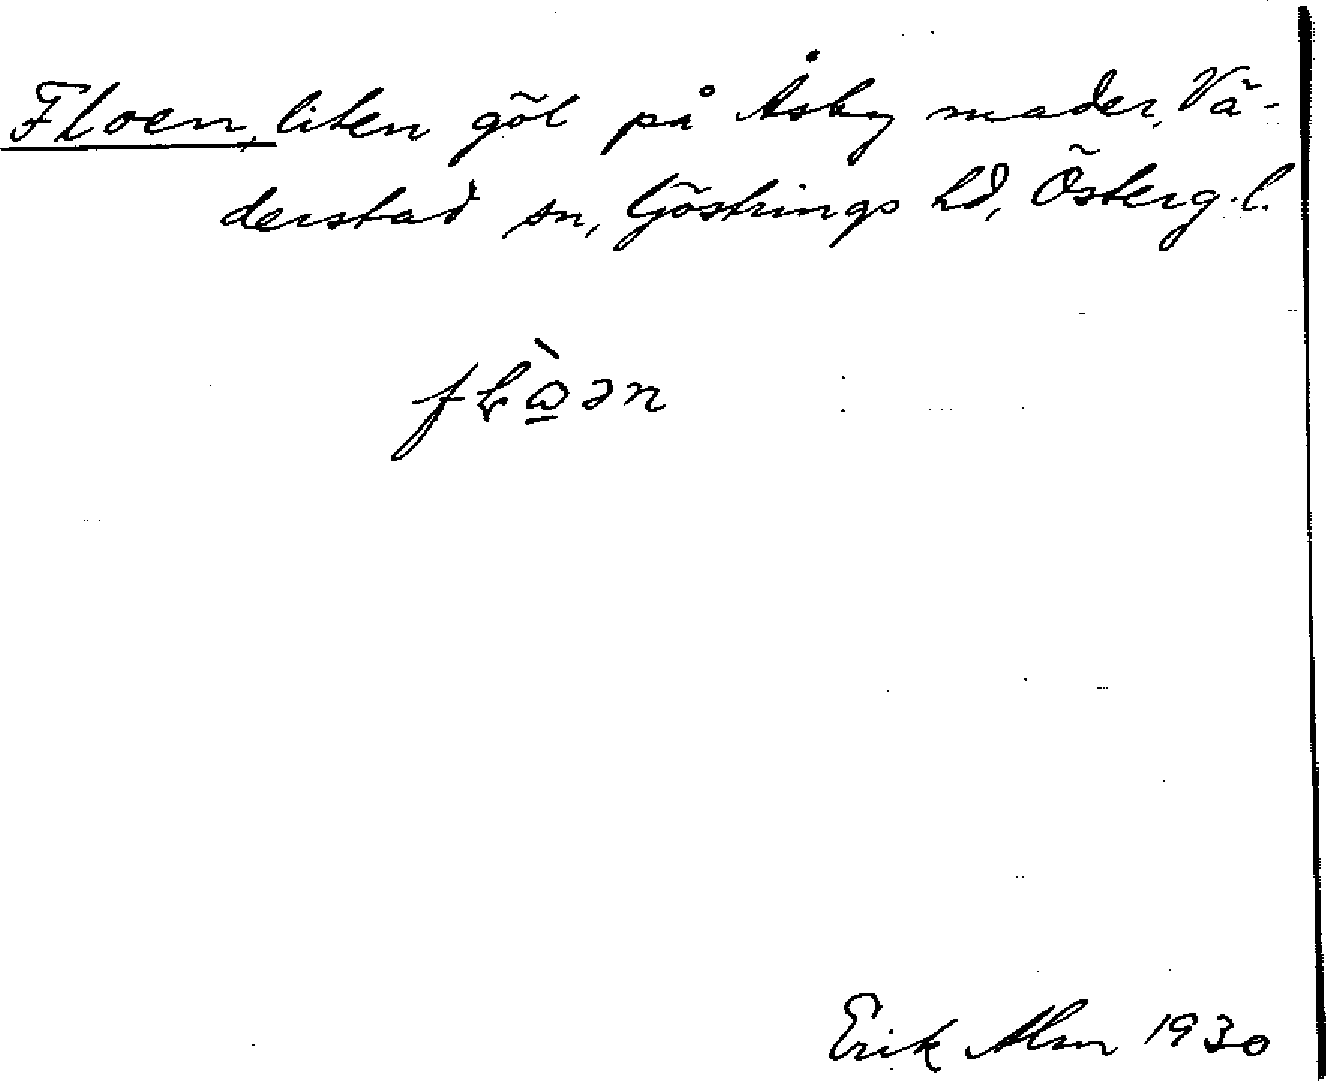 Floen, liten göl på Åsby mader, Vä-
derstad sn, Göstrings hd, Österg.l.
fɫò̱ən
Erik Alm 1930